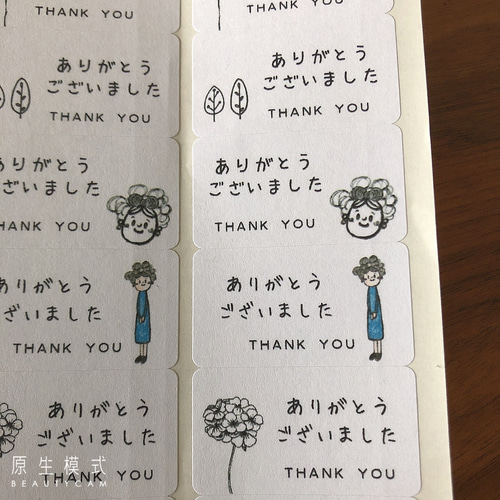 THANK YOU
THANK YOU
ありがとう
ございました
THANK YOU
ありがとう
ございました
THANK YOU
ありがとう
ございました
THANK YOU
ありがとう
ございました
THANK YOU
ありがとう
ございました
THANK YOU
ありがとう
ございました
THANK YOU
ありがとう
ございました
THANK YOU
ありがとう
ございました
THANK YOU
原生模式
BEAUTYCAM